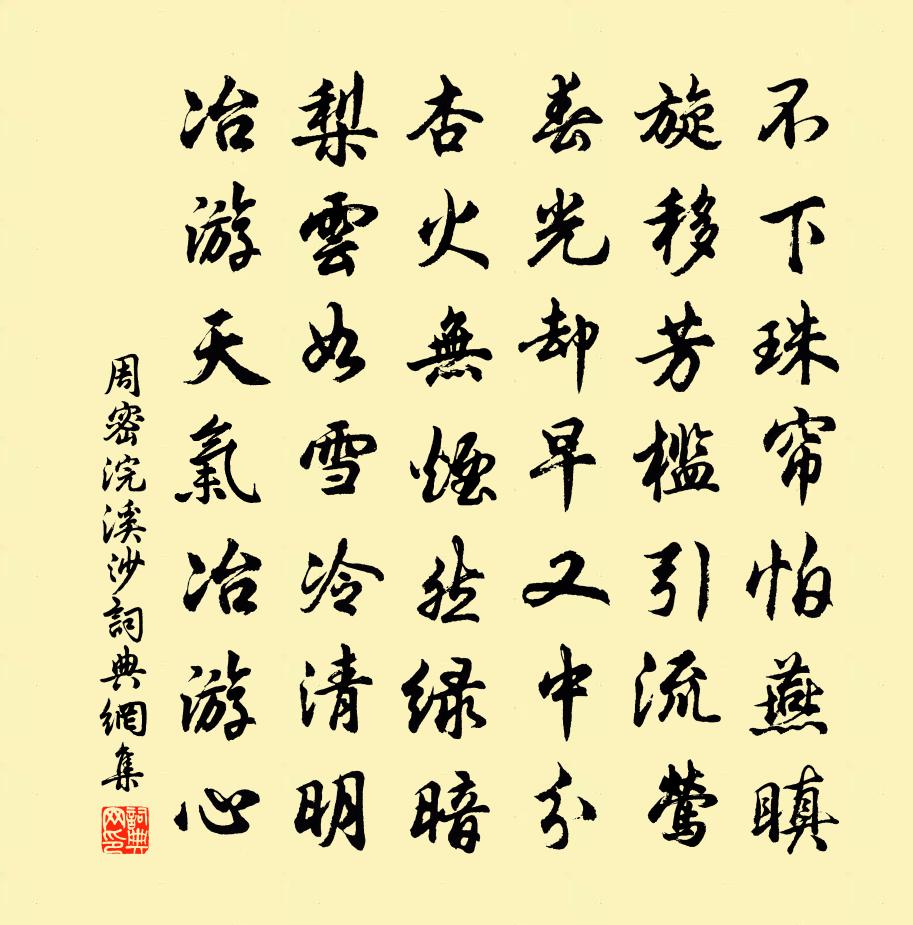 不下珠帘怕燕瞋
旋移芳槛引流莺
春光却早又中分
杏火無煙然绿暗
梨雲如雪冷清明
冶游天氣冶游心
周密浣溪沙詞典網集
詞典網印